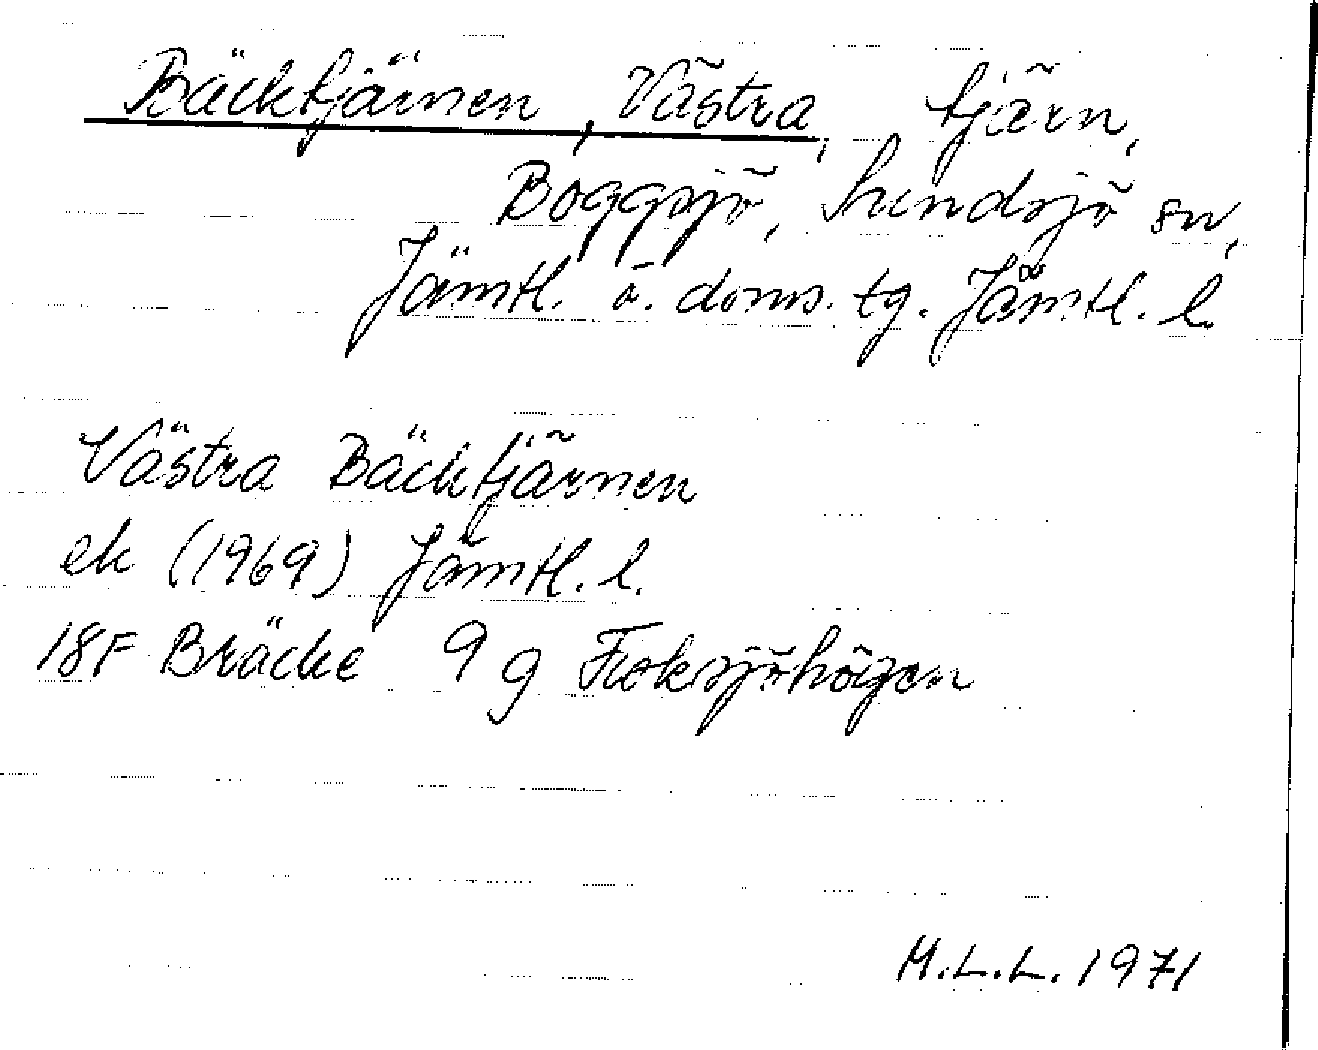 Bäcktjärnen, Västra, tjärn,
Boggsjö, Sundsjö sn,
Jämtl. ö. doms. tg. Jämtl. l.
Västra Bäcktjärnen
ek (1969) Jämtl. l.
18F Bräcke 9 g Fisksjöhögen
M.L.L. 1971